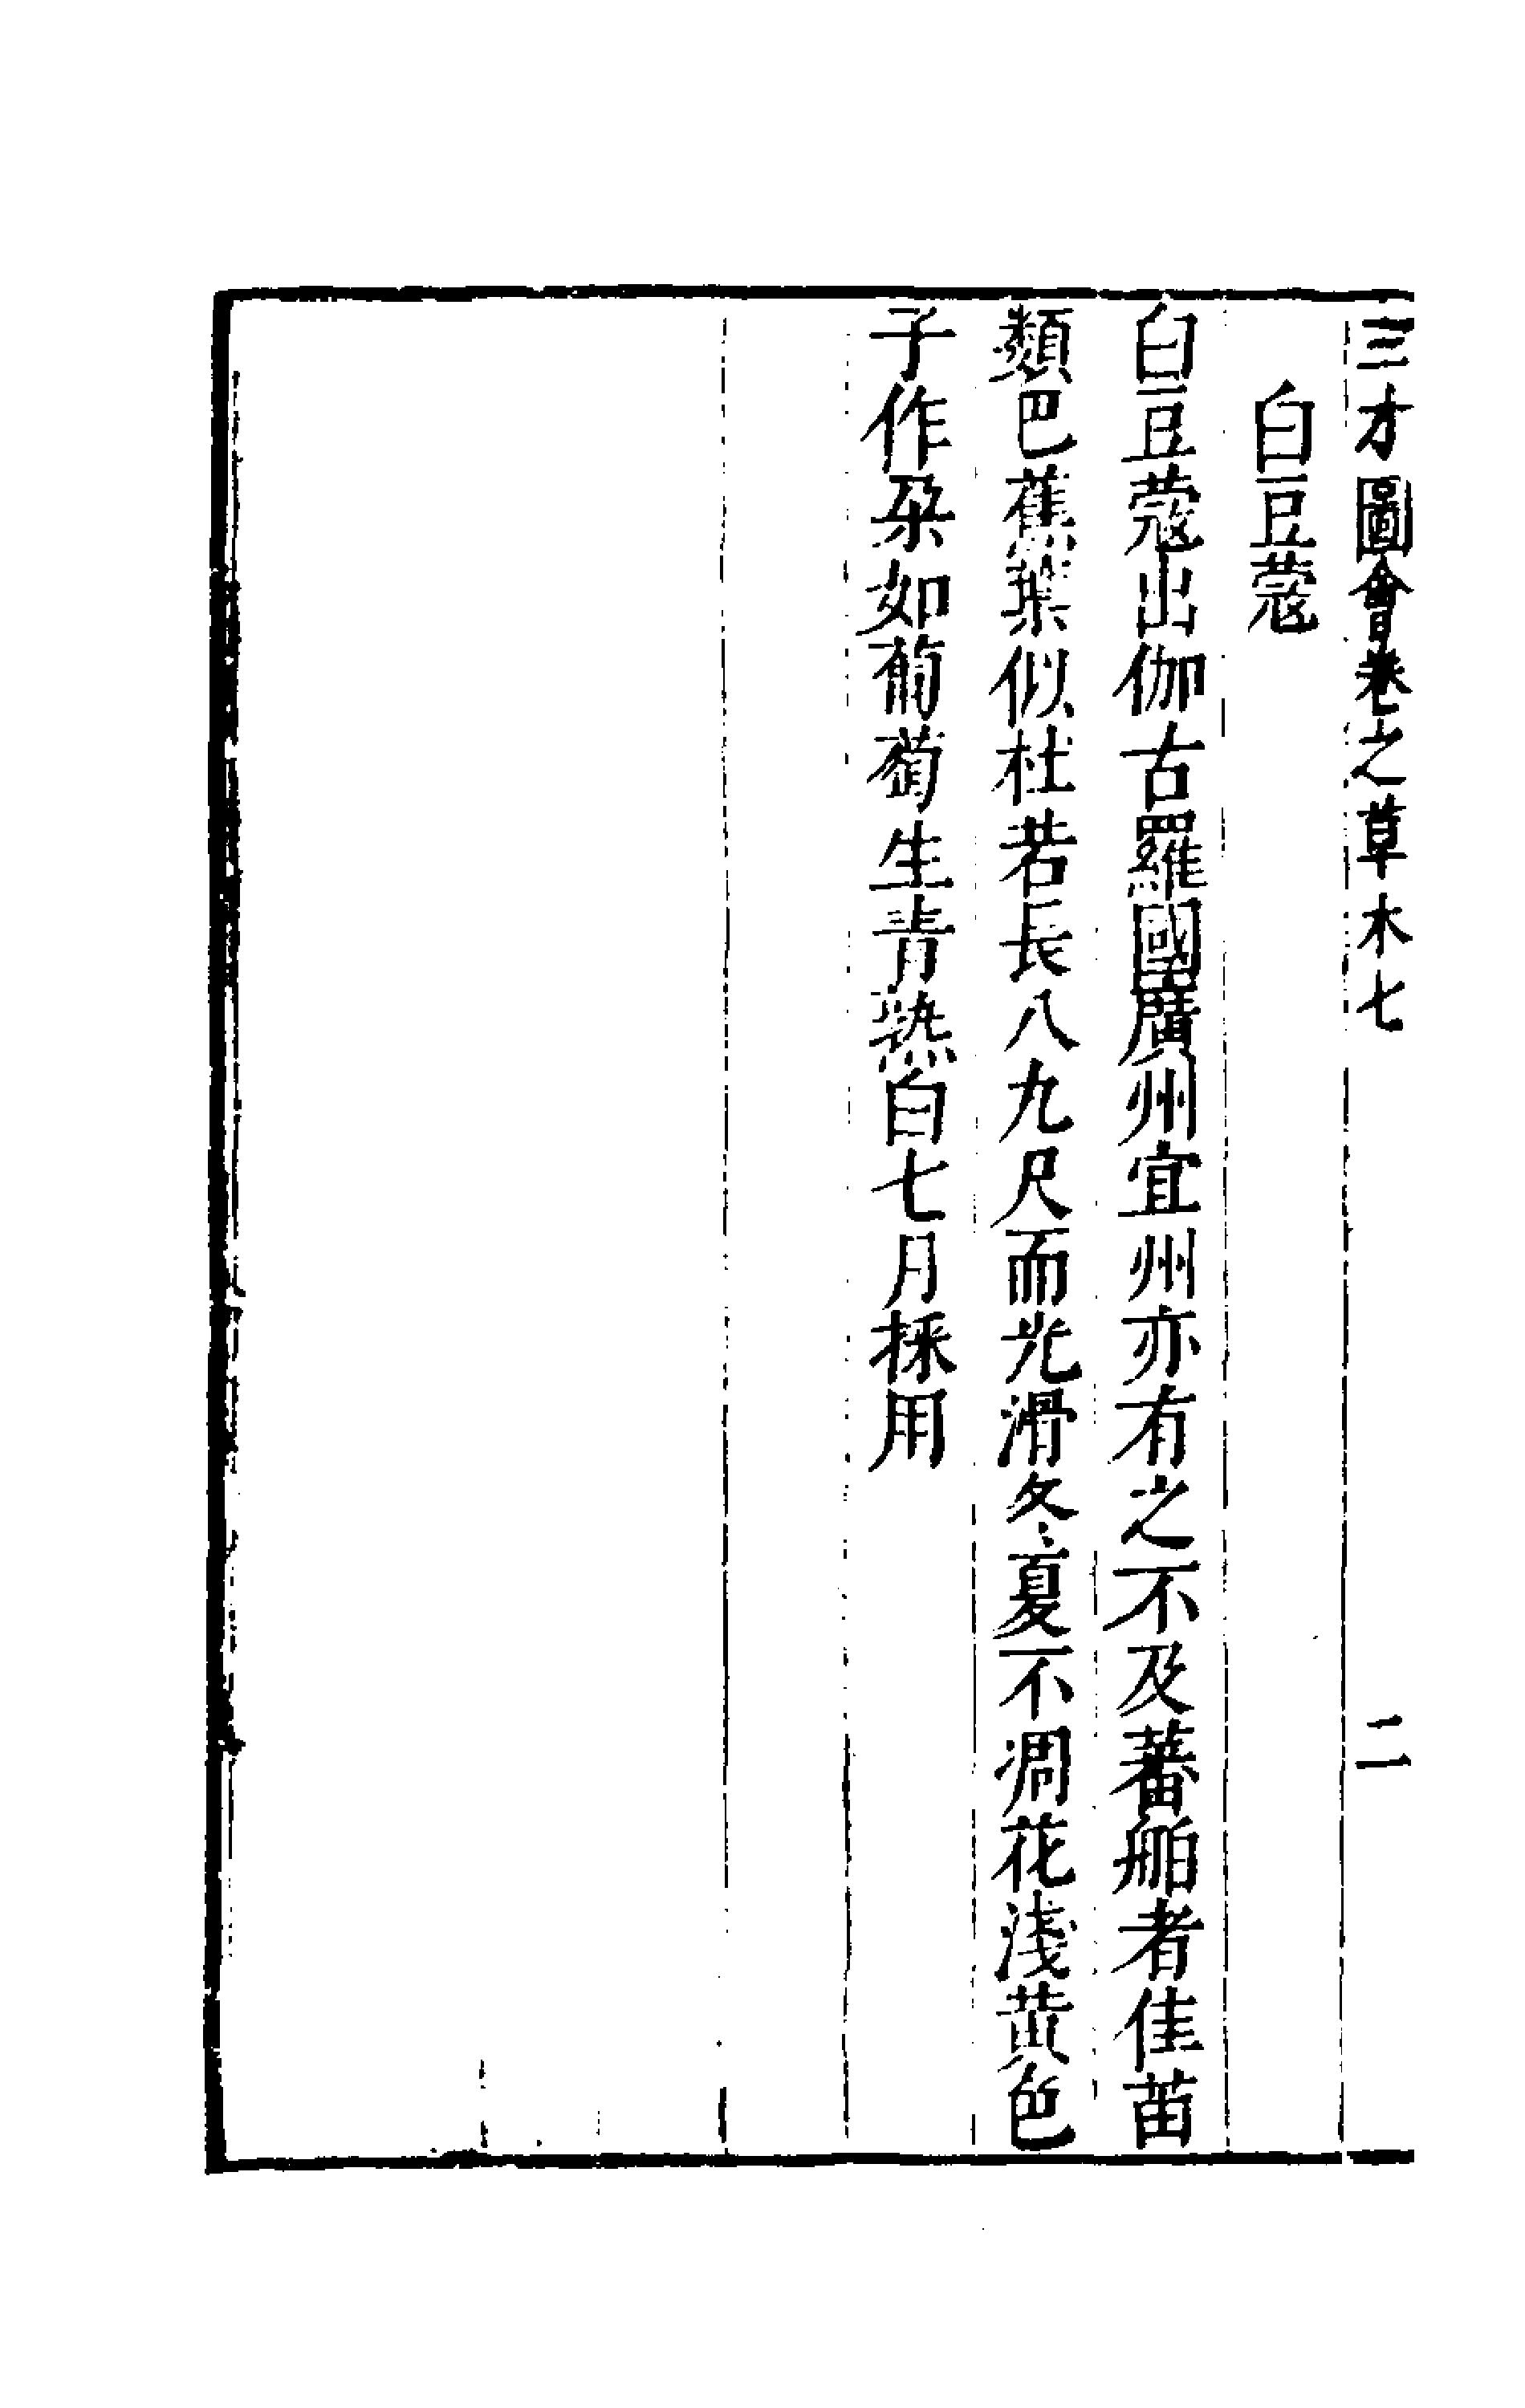 三才圖會卷之草木七 二
白豆蔻
白豆蔻出伽古羅國廣州宜州亦有之不及蕃舶者佳苗
類巴蕉葉似杜若長八九尺而光滑冬夏不凋花淺黄色
子作朶如葡萄生青熟白七月採用